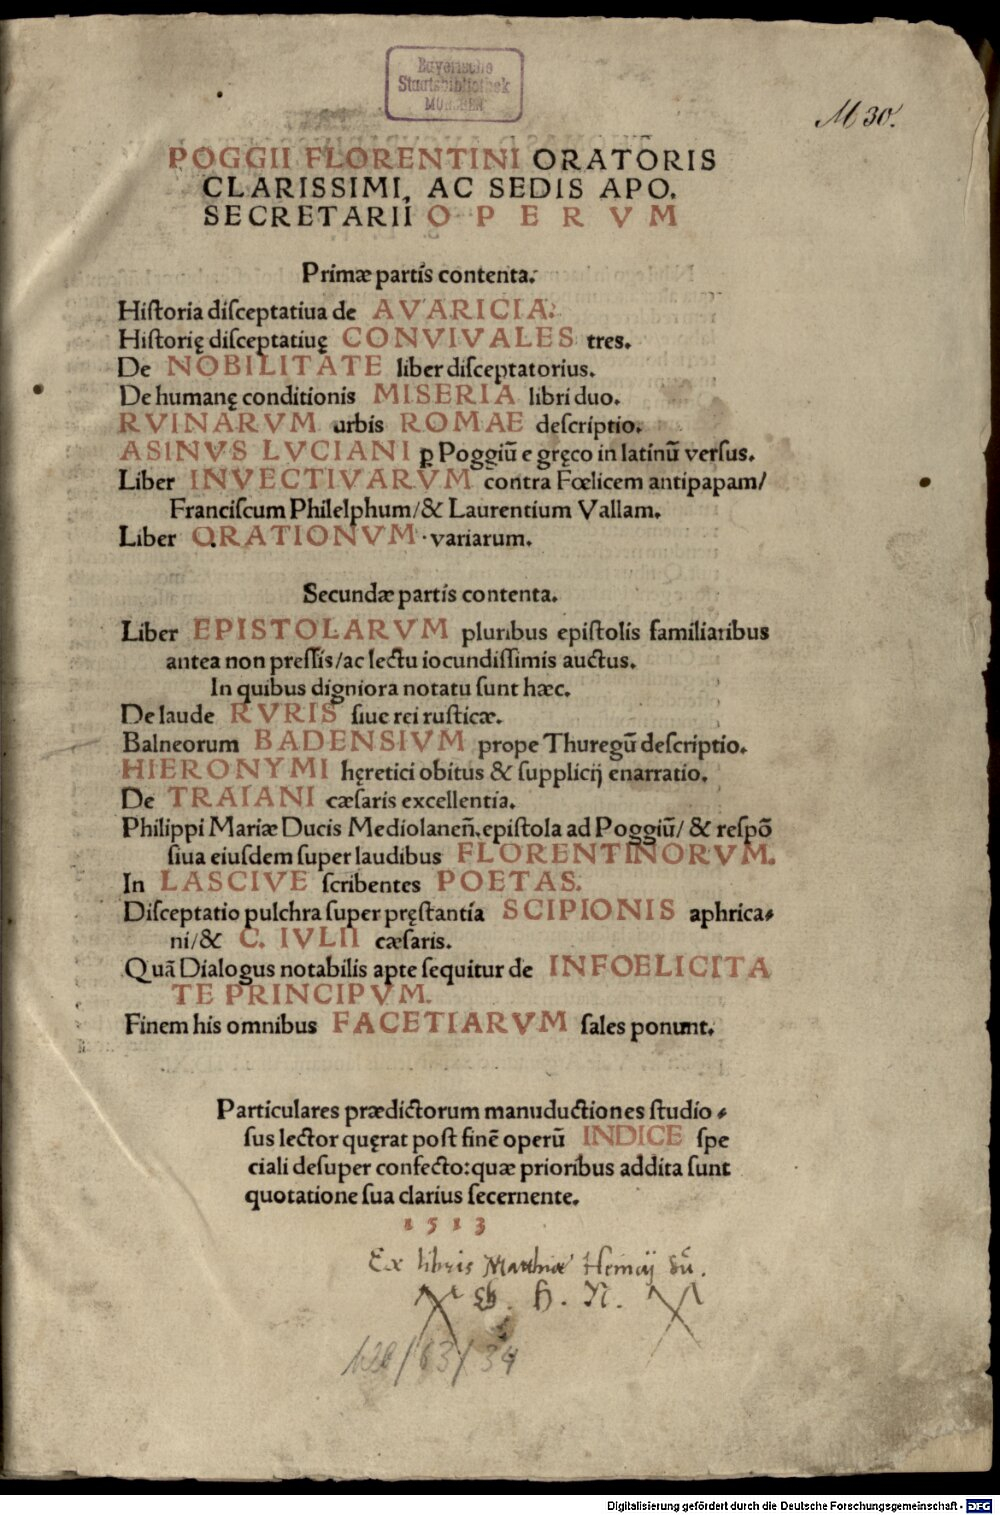 Bayerische
Staatsbibliothek
MÜNCHEN
M 30.
POGGII FLORENTINI ORATORIS
CLARISSIMI, AC SEDIS APO.
SECRETARII OPERVM
Primæ partis contenta.
Hiſtoria diſceptatiua de AVARICIA.
Hiſtorię diſceptatiuę CONVIVALES tres.
De NOBILITATE liber diſceptatorius.
De humanę conditionis MISERIA libri duo.
RVINARVM urbis ROMAE deſcriptio.
ASINVS LVCIANI ꝑ Poggiū e gręco in latinū verſus.
Liber INVECTIVARVM contra Fœlicem antipapam/
Franciſcum Philelphum/& Laurentium Vallam.
Liber ORATIONVM variarum.
Secundæ partis contenta.
Liber EPISTOLARVM pluribus epiſtolis familiaribus
antea non preſſis/ac lectu iocundiſſimis auctus.
In quibus digniora notatu ſunt hæc.
De laude RVRIS ſiue rei ruſticæ.
Balneorum BADENSIVM prope Thuregū deſcriptio.
HIERONYMI hęretici obitus & ſupplicij enarratio.
De TRAIANI cæſaris excellentia.
Philippi Mariæ Ducis Mediolaneñ. epiſtola ad Poggiū/ & reſpō
ſiua eiuſdem ſuper laudibus FLORENTINORVM.
In LASCIVE ſcribentes POETAS.
Diſceptatio pulchra ſuper pręſtantia SCIPIONIS aphrica⸗
ni/& C. IVLII cæſaris.
Quā Dialogus notabilis apte ſequitur de INFOELICITA
TE PRINCIPVM.
Finem his omnibus FACETIARVM ſales ponunt.
Particulares prædictorum manuductiones ſtudio⸗
ſus lector quęrat poſt finē operū INDICE ſpe
ciali deſuper confecto: quæ prioribus addita ſunt
quotatione ſua clarius ſecernente.
1513
Ex libris Matthiæ
H. N.
Digitalisierung gefördert durch die Deutsche Forschungsgemeinschaft - DFG